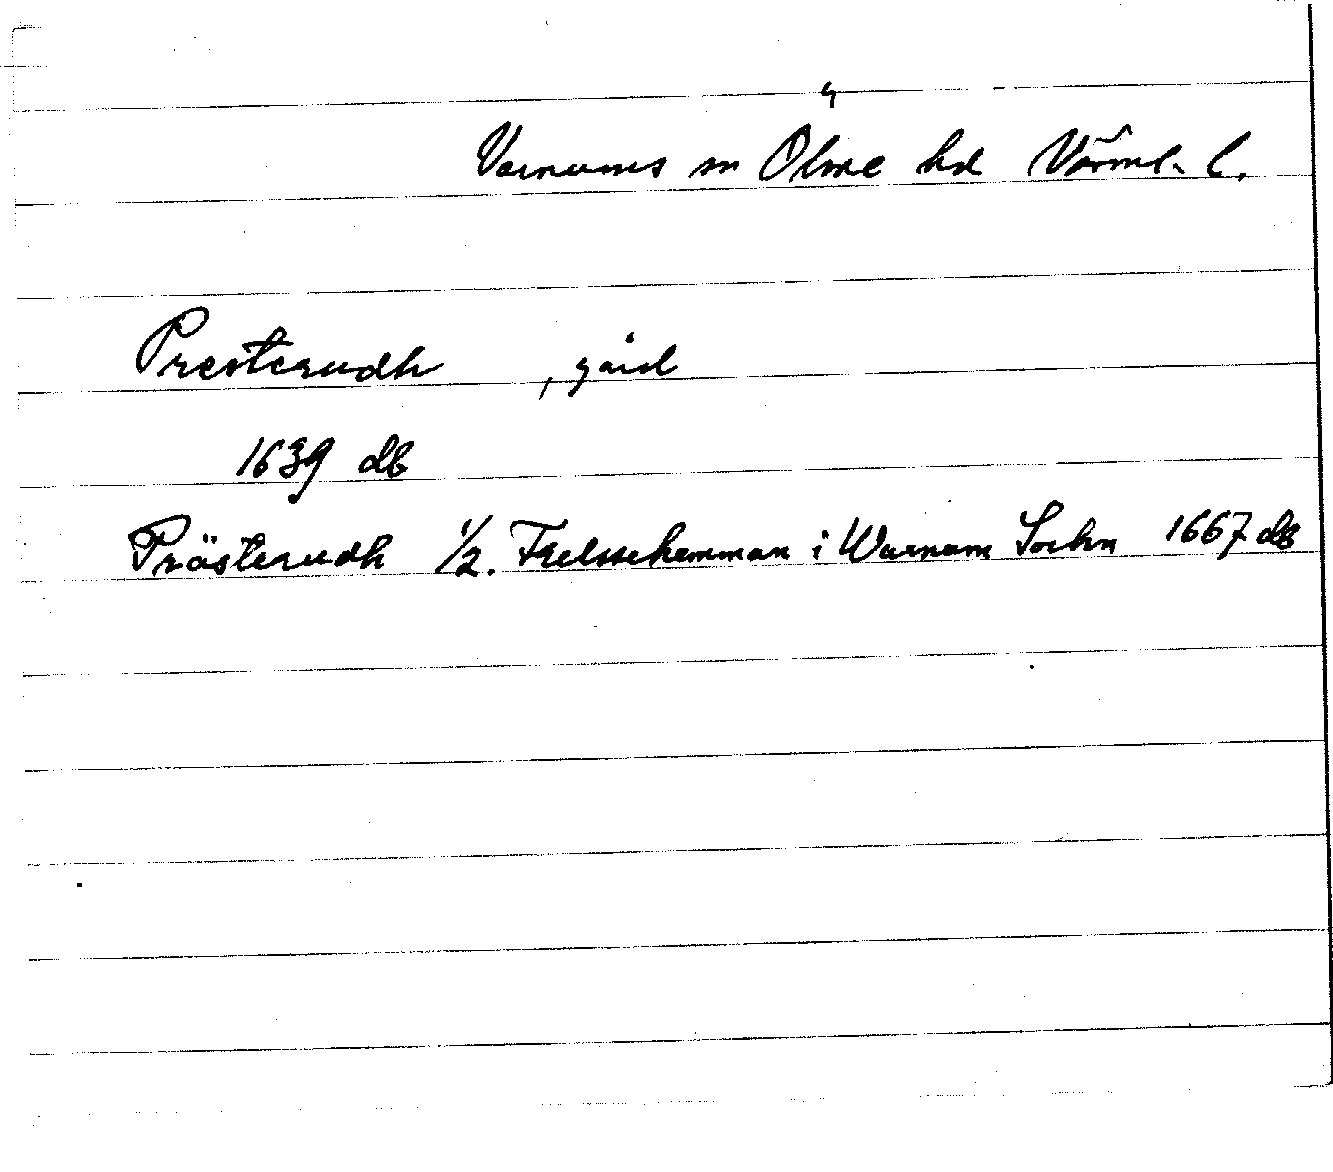 Varnums sn Ölme hd Värml. l.
Presterudh , gård
1639 db
Prästerudh 1/2. Frelssehemman i Warnam Sochn 1667 db